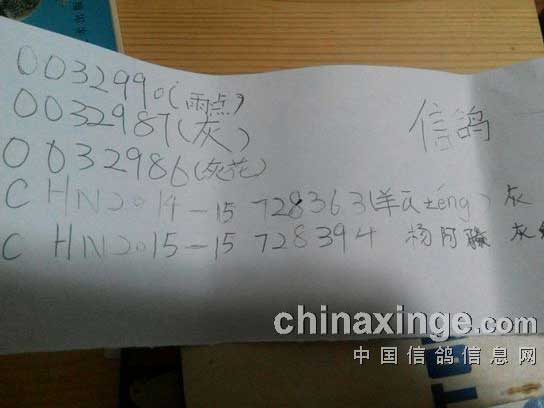 0032990(雨点)
0032987(灰)
0032986(灰花)
信鸽
CHN2014-15 728363(羊ā téng) 灰
CHN2015-15 728394 杨阿藤 灰
chinaxinge.com
中国信鸽信息网